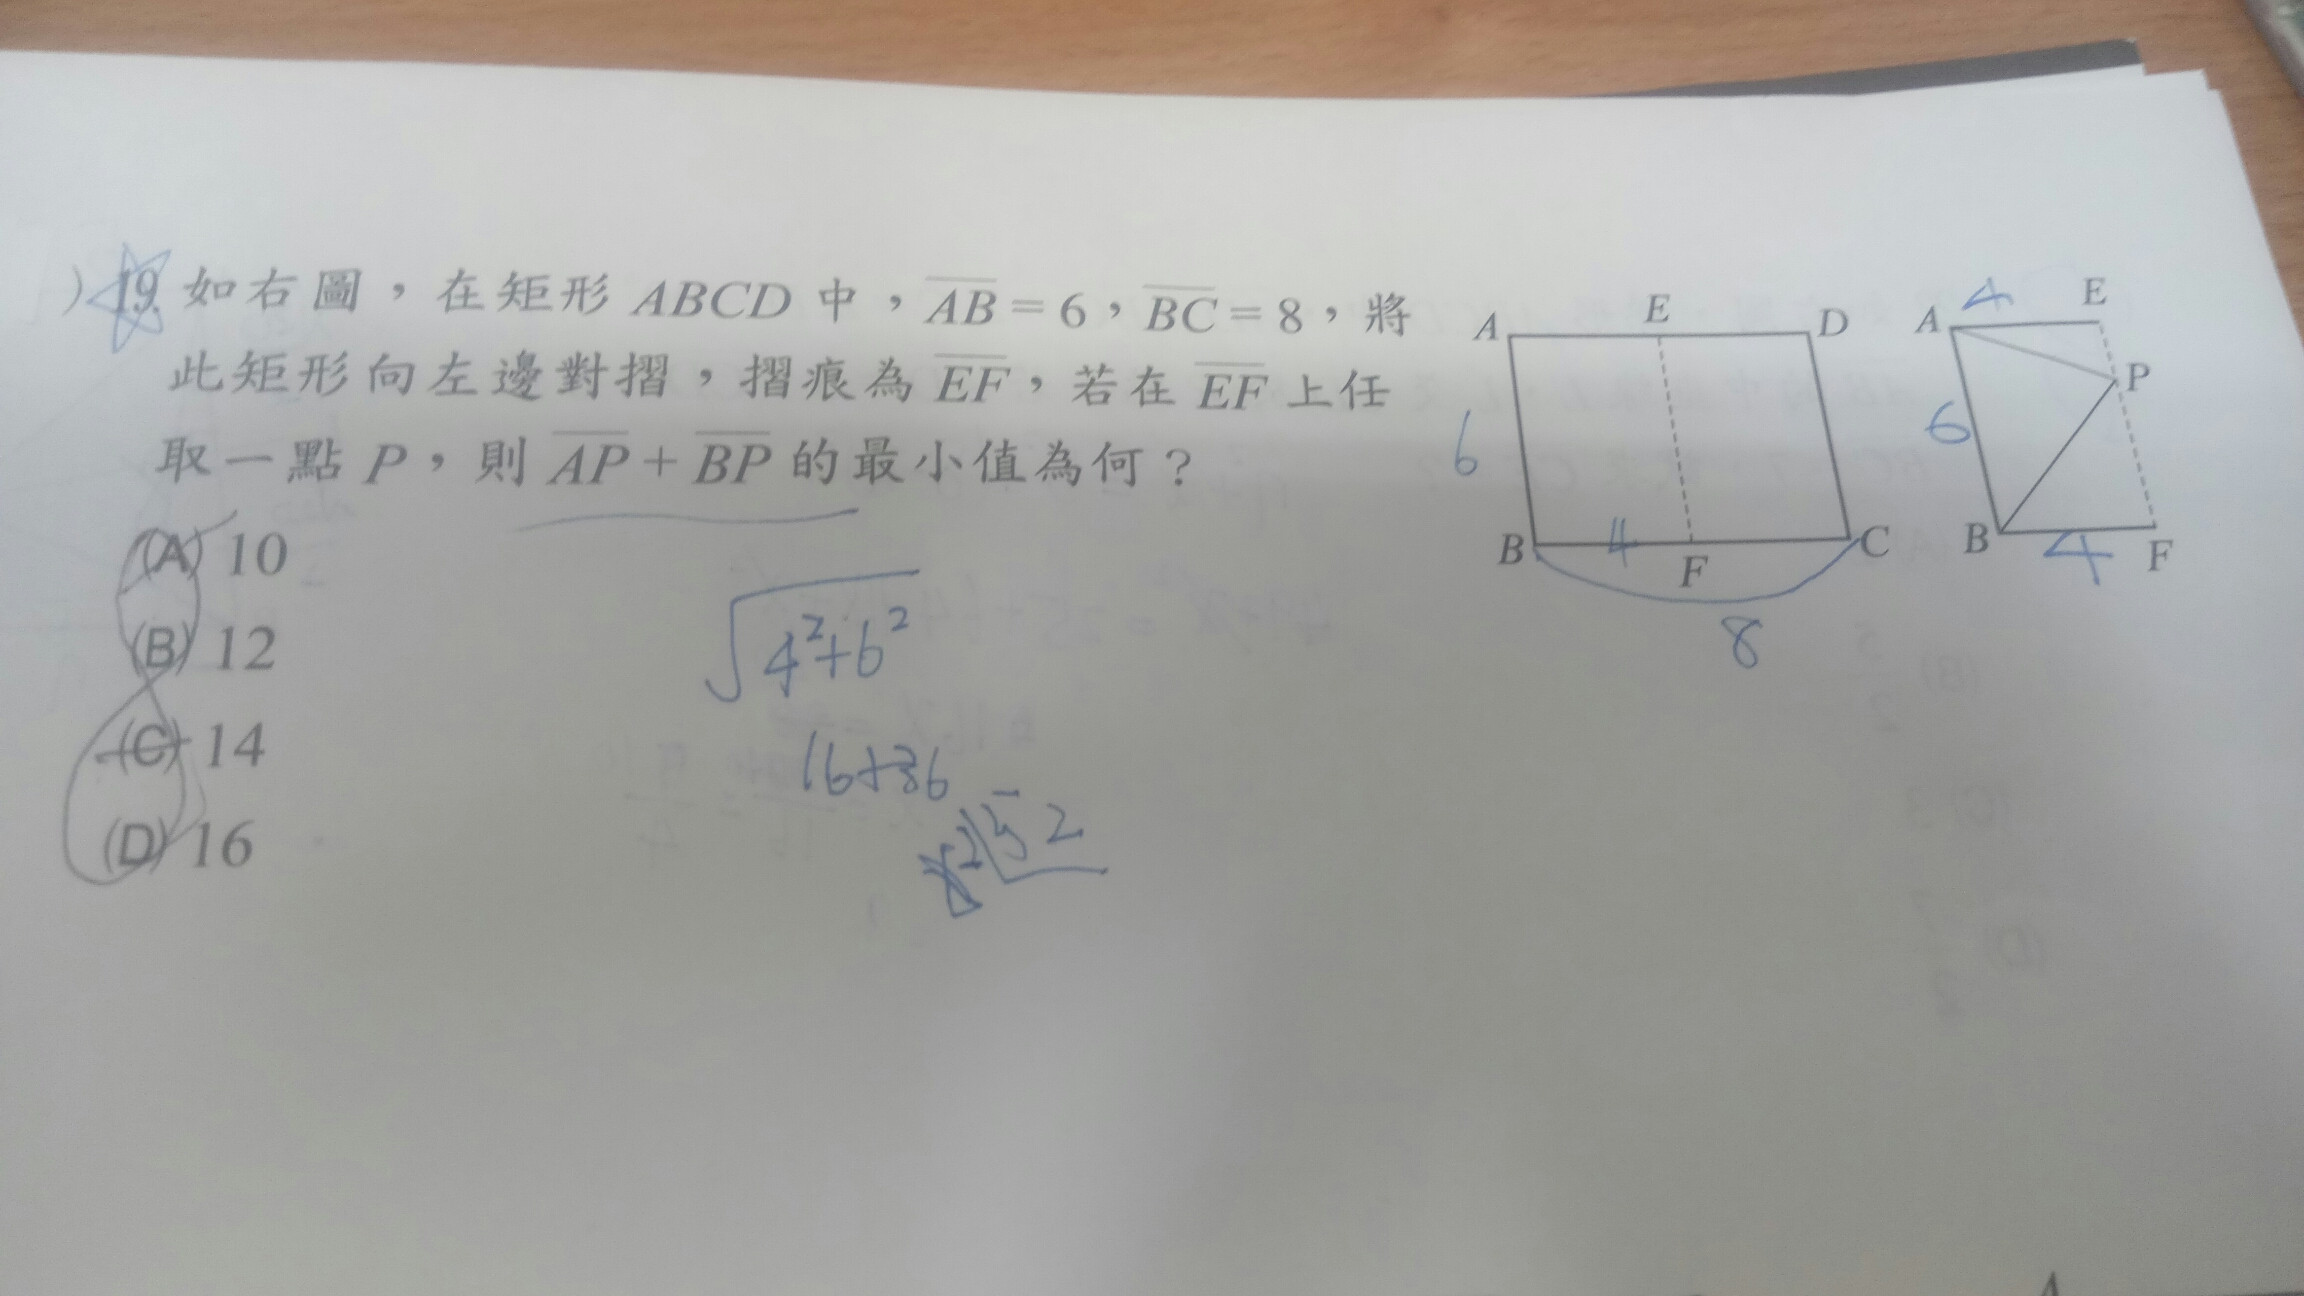 )19. 如右圖，在矩形 ABCD 中，AB = 6，BC = 8，將
此矩形向左邊對摺，摺痕為 EF，若在 EF 上任
取一點 P，則 AP + BP 的最小值為何？
(A) 10
(B) 12
(C) 14
(D) 16
√4²+6²
16+36
2 52
A E D
6
B 4 F C
8
A 4 E
P
6
B 4 F